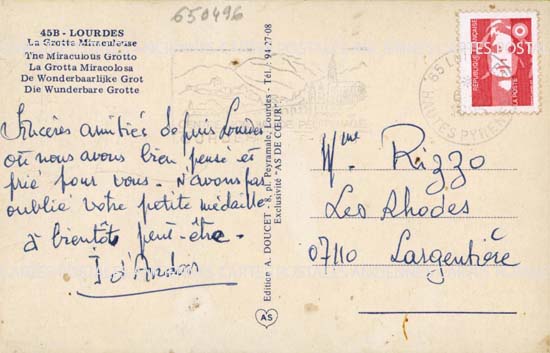 650496
45B - LOURDES
La Grotte Miraculeuse
The Miraculous Grotto
La Grotta Miracolosa
De Wonderbaarlijke Grot
Die Wunderbare Grotte
Sincères amitiés depuis Lourdes
où nous avons bien pensé et
prié pour vous. N'avons pas
oublié votre petite médaille
à bientôt peut-être.
Edition A. DOUCET - 8, pl. Peyramale, Lourdes - Tél.: 94-27-08
Exclusivité "AS DE CŒUR"
AS
REPUBLIQUE FRANÇAISE
LA POSTE
65 LOURDES
HAUTES PYRENEES
Mme Rizzo
Les Rhodes
07110 Largentière